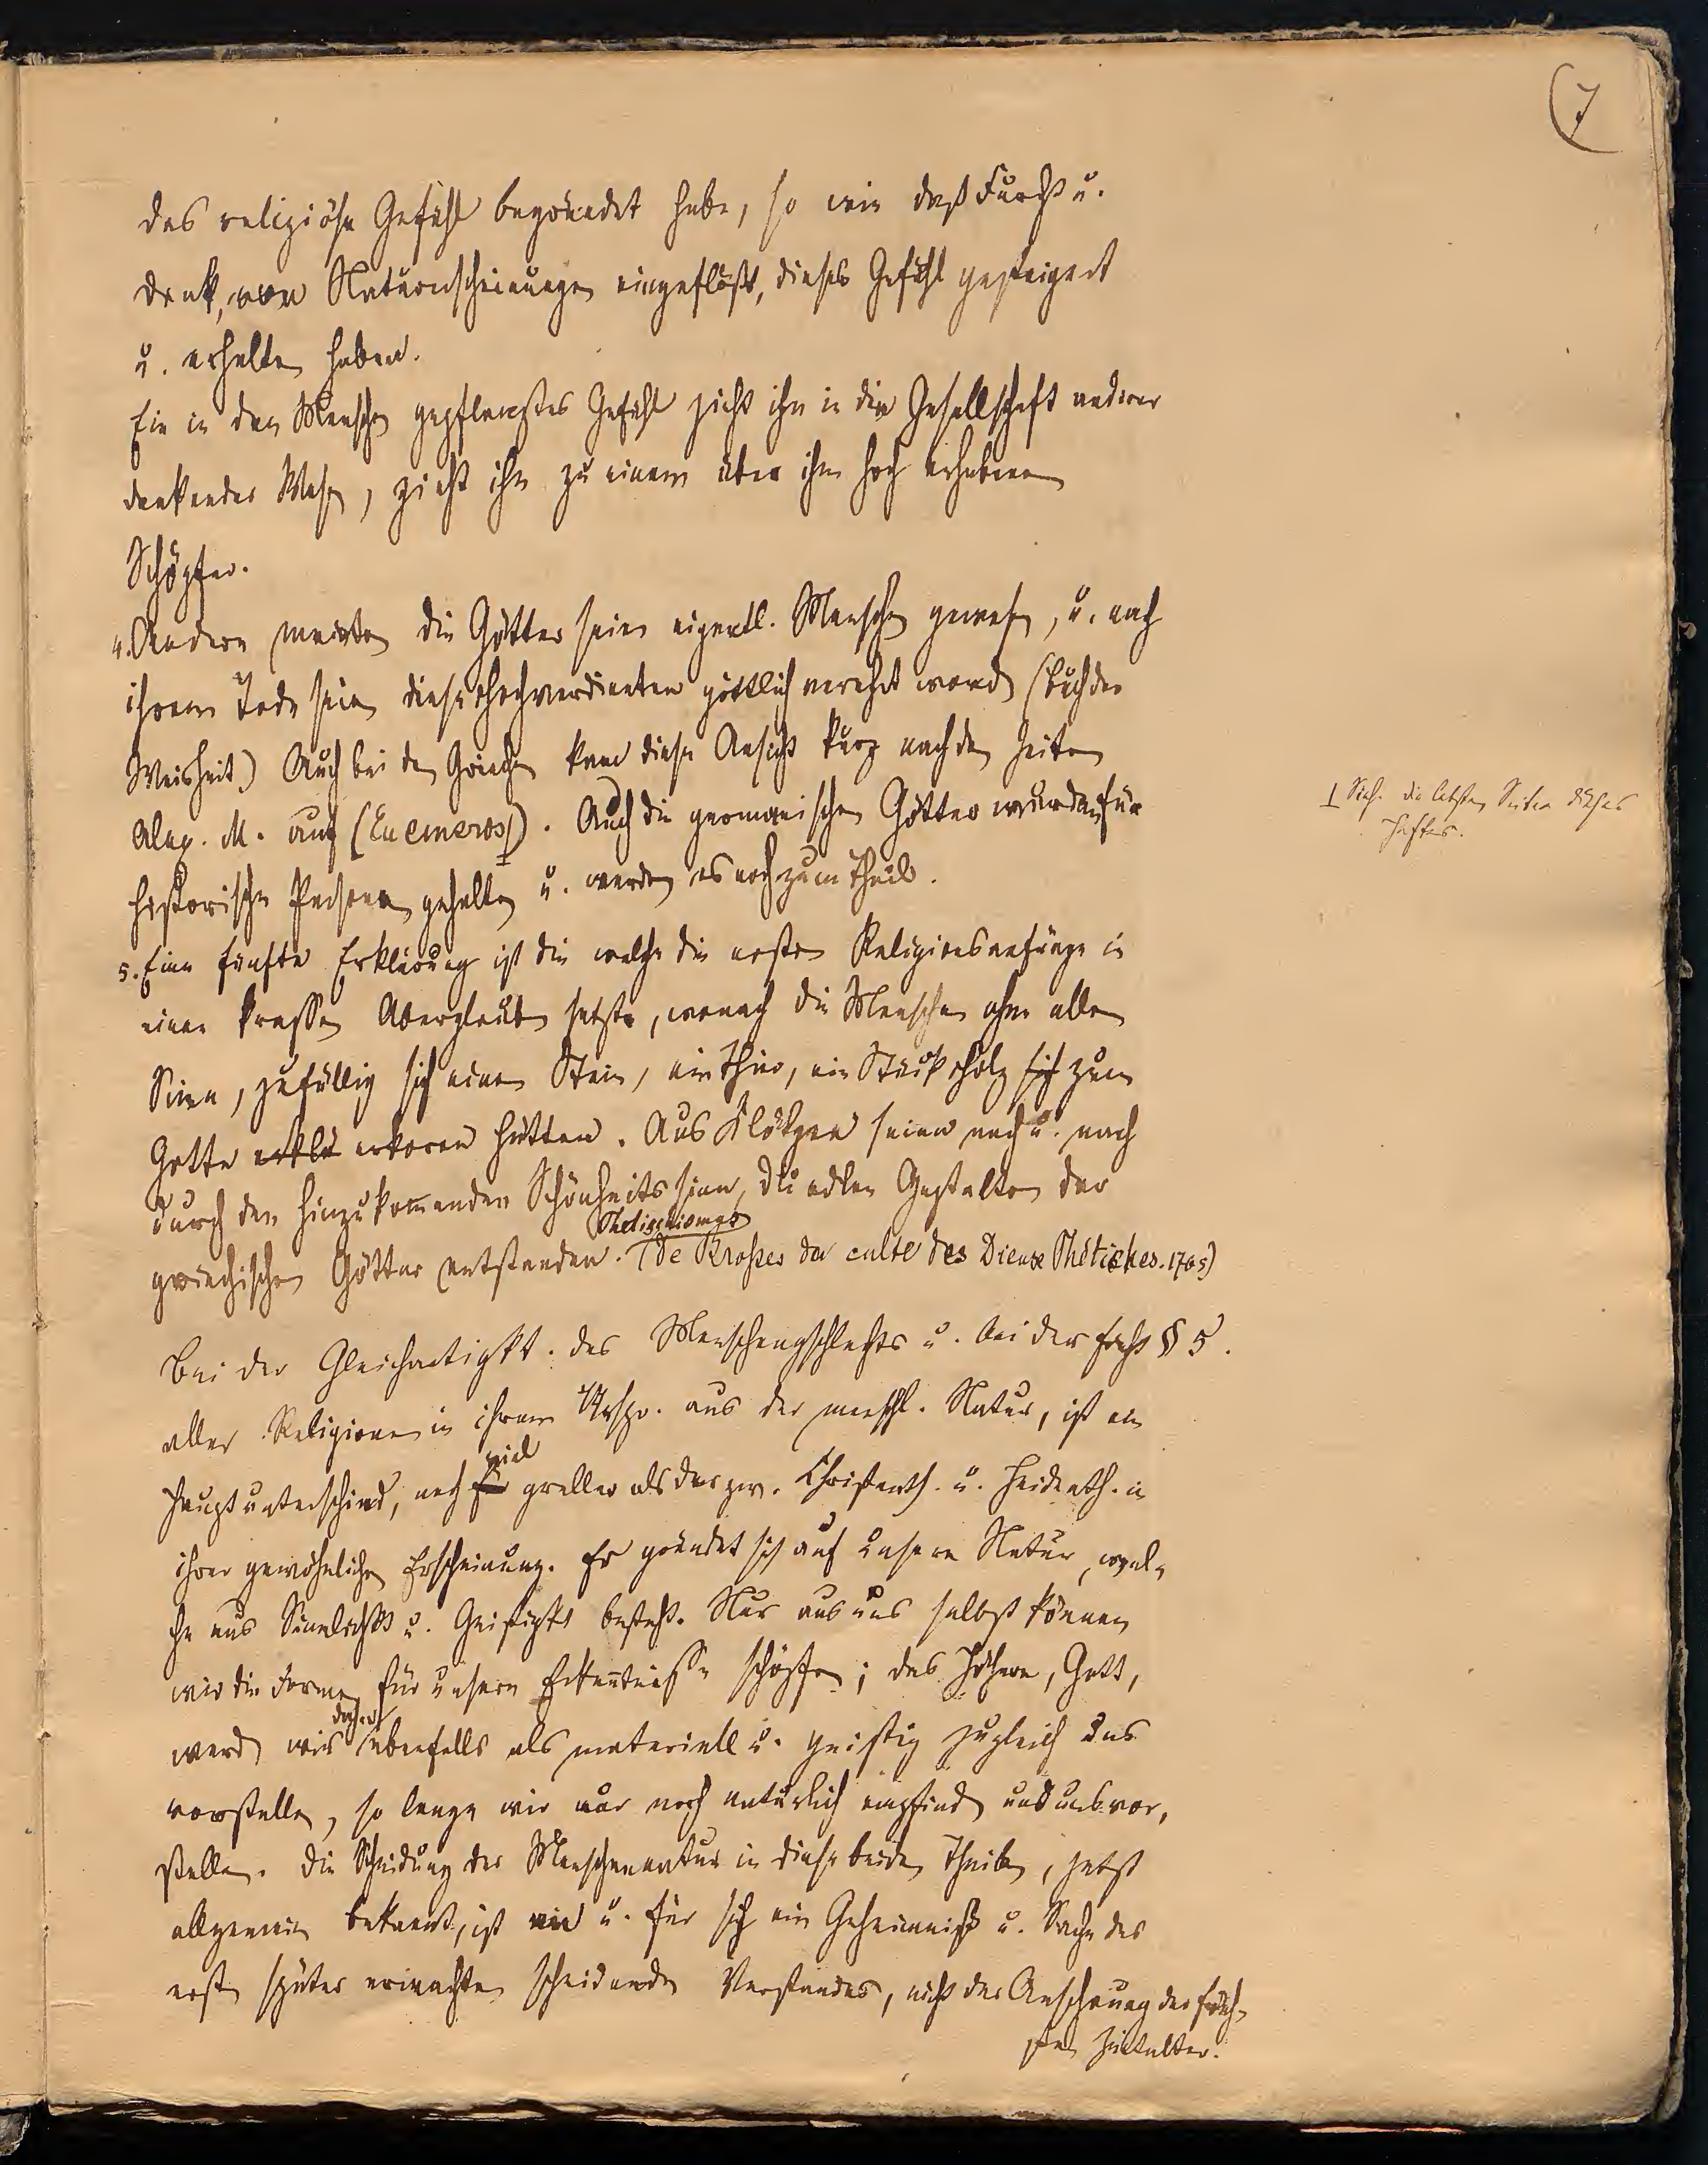 7
das religiöse Gefühl begründet habe, so wie daß Furcht u.
Dank, von Naturerscheinungen eingeflößt, dieses Gefühl gesteigert
u. erhalten haben.
Ein in den Menschen gepflanztes Gefühl zieht ihn in die Gesellschaft anderer
denkender Wesen, zieht ihn zu einem über ihm hoch erhabenen
Schöpfer.
4. Andere meinten die Götter seien eigentl. Menschen gewesen, u. nach
ihrem Tode seien diese Hochverdienten göttlich verehrt worden (Buch der
Weisheit) Auch bei den Griechen kam diese Ansicht kurz nach den Zeiten
Alex. M. auf (Euemeros). Auch die germanischen Götter wurden für
historische Personen gehalten u. werden es noch zum Theil.
⊥ Sieh die letzten Seiten dieses
Heftes.
5. Eine fünfte Erklärung ist die welche die ersten Religionsanfänge in
einen krassen Aberglauben setzte, wonach die Menschen ohne allen
Sinn, zufällig sich einen Stein, ein Thier, ein Stück Holz sich zum
Gotte erklä erkoren hätten. Aus Klötzen seien nach u. nach
durch den hinzukommenden Schönheitssinn, die edlen Gestalten der
Phetischismus
griechischen Götter entstanden. (de Brosses du culte des Dieux Phétiches. 1765)
Bei der Gleichartigkt. des Menschengschlechts u. bei der § 5.
aller Religionen in ihrem Urspr. aus der menschl. Natur, ist ein
viel
Hauptunterschied, noch greller als der zw. Christenth. u. Heidenth. in
ihrer gewöhnlichen Erscheinung. Er gründet sich auf unsere Natur, wel-
che aus Sinnlichkt u. Geistigkt besteht. Nur aus uns selbst können
wir die Formen für unsere Erkenntnisse schöpfen; das Höhere, Gott,
daher
werden wir ebenfalls als materiell u. geistig zugleich uns
vorstellen, so lange wir nur noch natürlich empfinden und uns vor-
stellen. Die Scheidung der Menschennatur in diese beiden Theile, jetzt
allgemein bekannt, ist an u. für sich ein Geheimniß u. Sache des
erst später erwachten scheidenden Verstandes, nicht der Anschauung der früh-
sten Zeitalter.